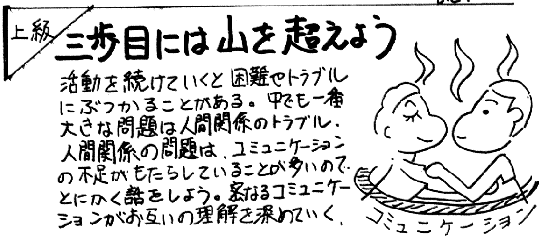 上級
三歩目には山を超えよう
活動を続けていくと困難やトラブル
にぶつかることがある。中でも一番
大きな問題は人間関係のトラブル.
人間関係の問題は、コミュニケーション
の不足がもたらしていることが多いので、
とにかく話をしよう。密なるコミュニケー
ションがお互いの理解を深めていく.
コミュニケーション